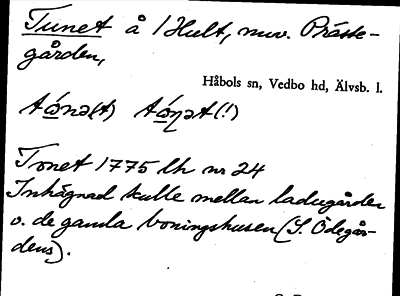 Tunet å 1 Hult, nuv. Präste-
gården,
Håbols sn, Vedbo hd, Älvsb. l.
tώnə(t) tώηət(!)
Tonet 1775 lh nr 24
Inhägnad kulle mellan ladugården
o. de gamla boningshusen (S. Ödegår-
dens).